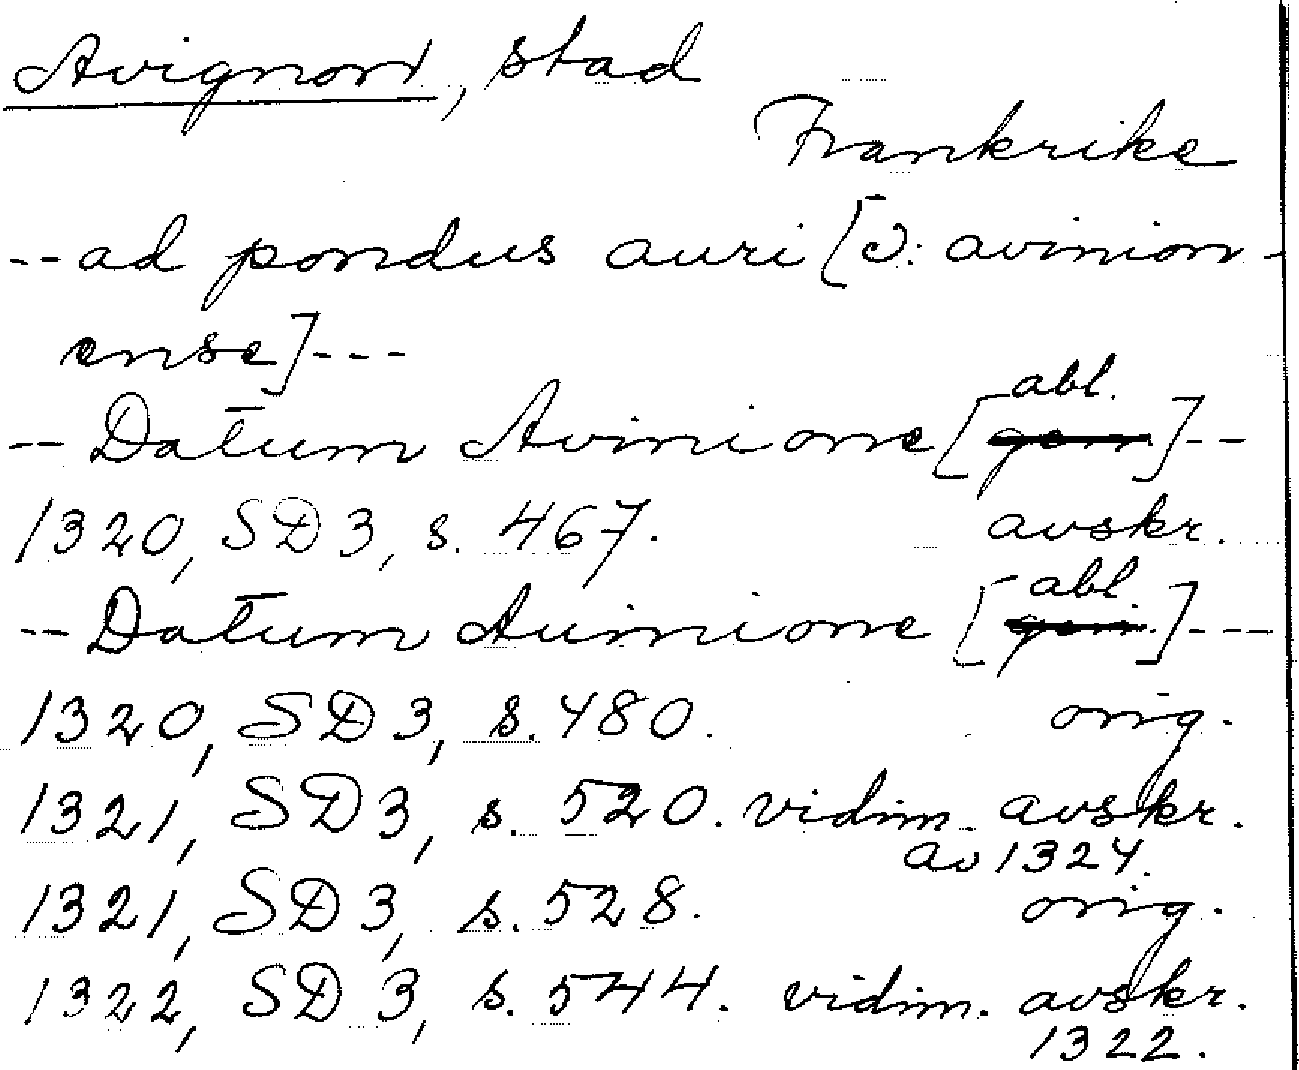 Avignon, stad
Frankrike
--ad pondus auri [ɔ: avinion-
ense]---
-- Datum Avinione [abl. gen]--
1320, SD 3, s. 467. avskr.
-- Datum Auinione [abl. gen.]---
1320, SD 3, s. 480. orig.
1321, SD 3, s. 520. vidim. avskr.
av 1324.
1321, SD 3, s. 528. orig.
1322, SD 3, s. 544. vidim. avskr.
1322.